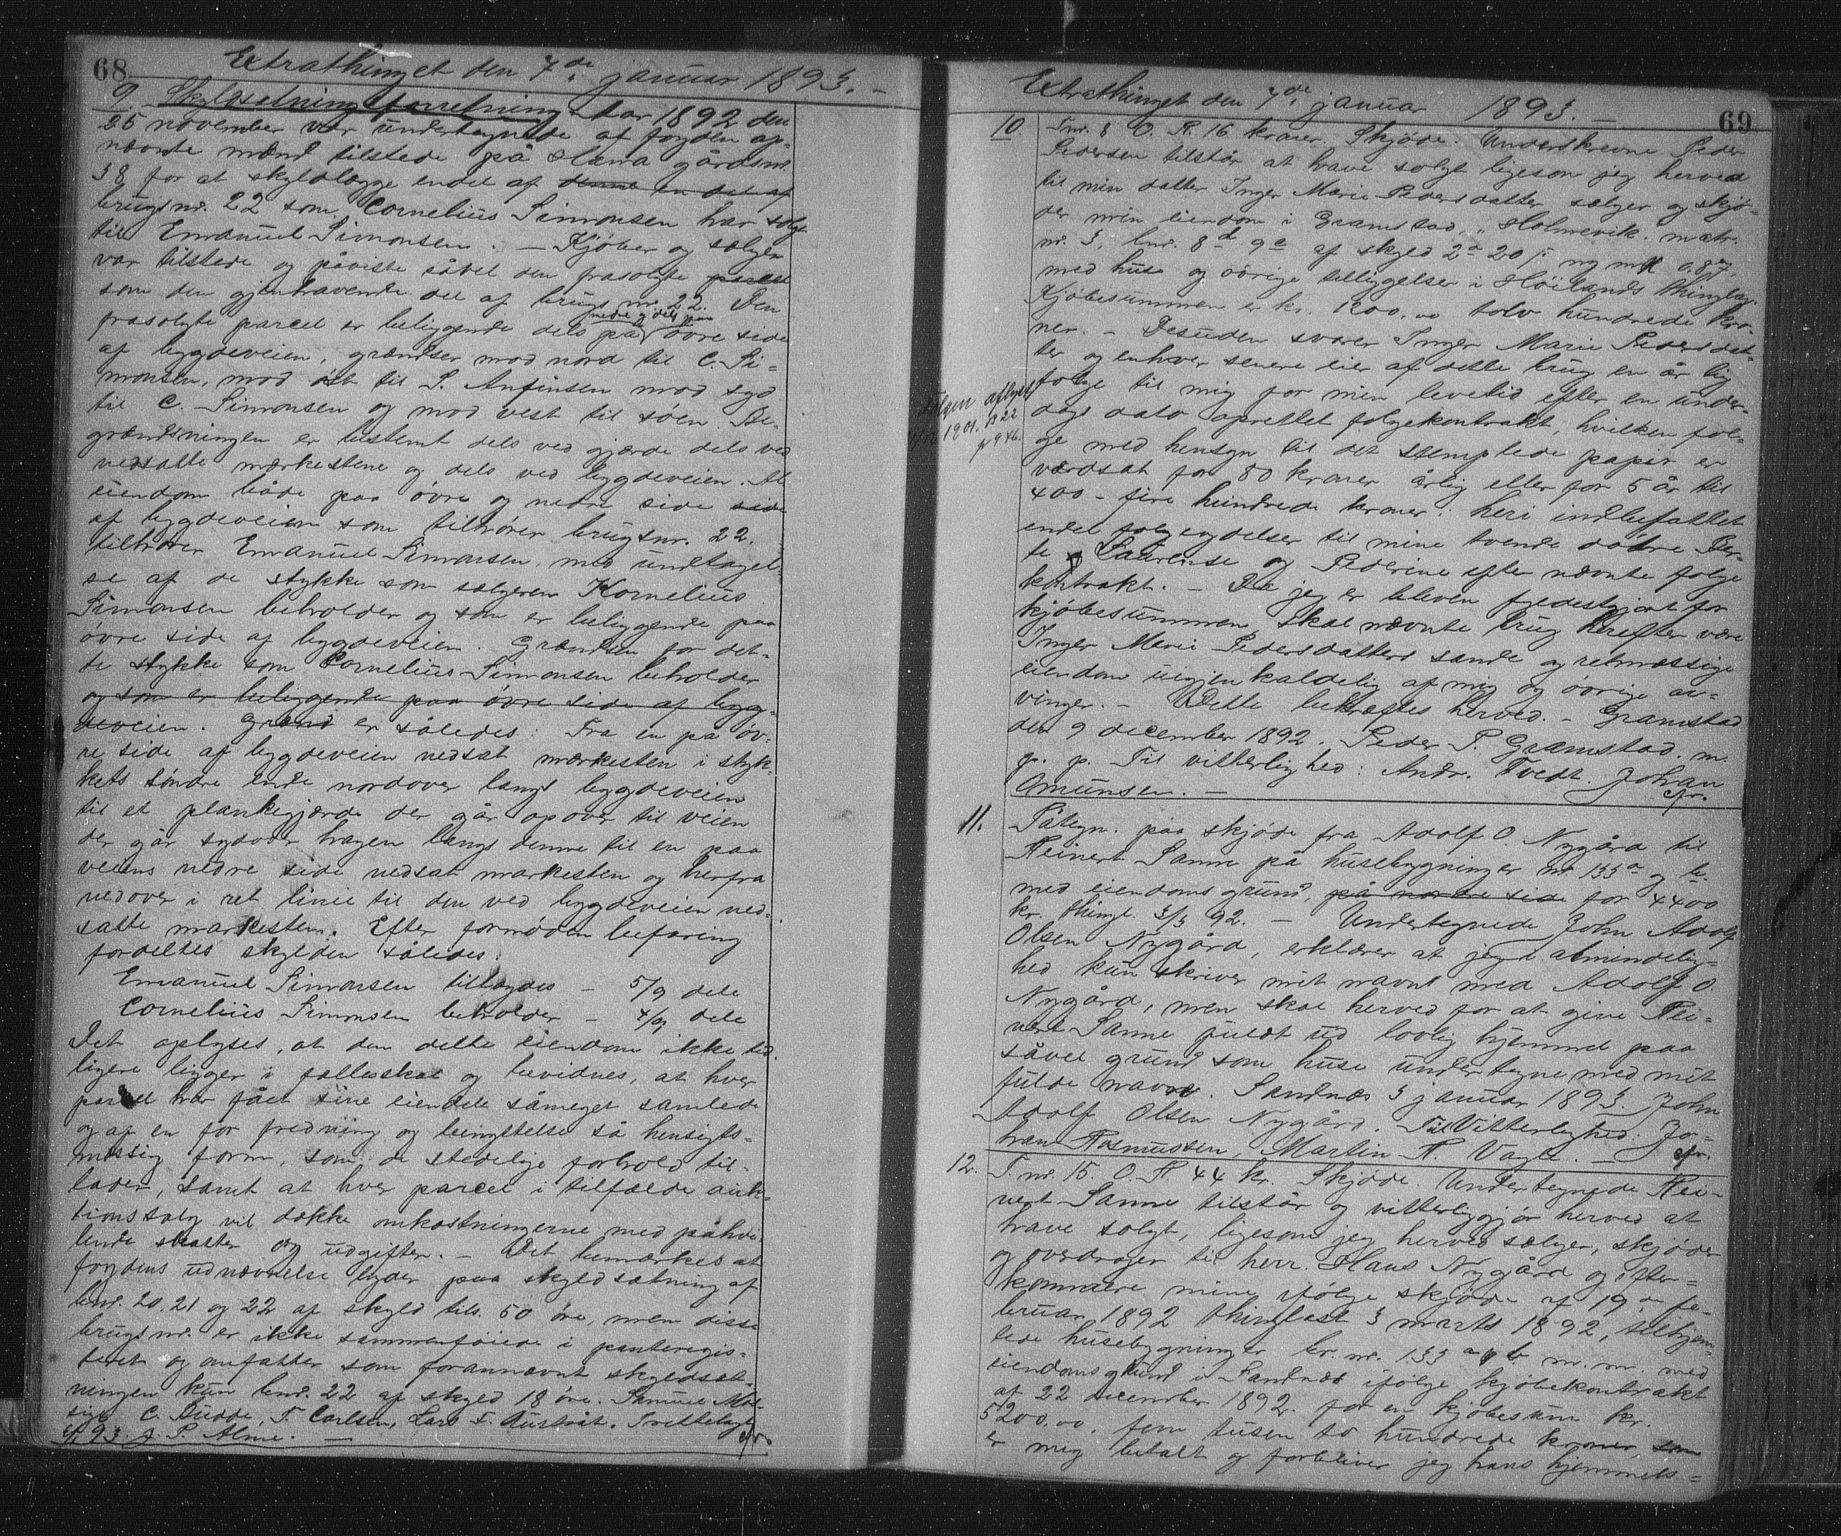 68
Extrathinget den 7de januar 1893. -
9. Skyldsetningsforretning. Aar 1892 den
25 november var undertegnede af fogden op-
nævnte mænd tilstede på Hana gårdsnr.
38 for at skyldlægge endel af denne en del af
brugsnr. 22 som Cornelius Simonsen har solgt
til Emanuel Simonsen. - Kjøber og sælger
var tilstede og påviste såvel den frasolgte parcel
som den gjenhavende del af brugs nr. 22. Den
frasolgte parcel er beliggende dels på nedre og dels paa øvre side
af bygdeveien, grændser mod nord til C. Si-
monsen, mod øst til S. Anfinsen mod syd
til C. Simonsen og mod vest til søen. Be-
grændsningen er bestemt dels ved gjærde dels ved
nedsatte mærkestene og dels ved bygdeveien. Al
eiendom både paa øvre og nedre side side
af bygdeveien som tilhører brugsnr. 22.
tilhører Emanuel Simonsen, med undtagel-
se af de stykke som sælgeren Kornelius
Simonsen beholder og som er beliggende paa
øvre side af bygdeveien. Grændsen for det-
te stykke som Cornelius Simonsen beholder
og som er beliggende paa øvre side af byg-
deveien. Grænd er således: Fra en på øv-
re side af bygdeveien nedsat mærkesten i styk-
kets søndre ende nordover langs bygdeveien
til et plankegjærde der går opover til veien
der går sydover hagen langs denne til en paa
veiens nedre side nedsat mærkesten og herfra
nedover i ret linie til den ved bygdeveien ned-
satte mærkesten. Efter formøden befaring
fordeltes skylden således:
Emanuel Simonsen tillægdes - 5/9 dele
Cornelius Simonsen beholder - 4/9 dele
Det oplyses, at den delte eiendom ikke tid-
ligere ligger i fælleskab og bevidnes, at hver
parcel har fået sine eiendele såmeget samlede
og af en for fredning og benyttelse så hensigts-
mæssig form, som de stedelige forhold til-
lader, samt at hver parcel i tilfælde auk-
tionssalg vil dække omkostningerne med påhvi-
lende skatter og udgifter. - Det bemærkes at
fogdens udnævnelse lyder paa skyldsætning af
bnr. 20, 21 og 22 af skyld tils. 50 øre, men disse
brugsnr. er ikke sammenføiede i panteregis-
teret og omfatter som forannævnt skyldsæt-
ningen kun bnr. 22 af skyld 18 øre. Samuel Mos-
sige C. Dudde, T. Carlsen, Lars T. Austråt. Trettelagt
93 J. P. Alme. -
cfr.
Extrathinget den 7de januar 1893. -
69
10. Tnr. 8 O. R. 16 kroner. Skjøde. Underskrevne Peder
Pedersen tilstår at have solgt ligesom jeg herved
til min datter Inger Marie Pedersdatter sælger og skjø-
der min eiendom i Gramstad, „Holmevik" matr.
nr. 3, lnr. 8d 9e af skyld 2a 20/5 ny mk 0.87,
med huse og øvrige tilliggelser i Høilands thinglag.
Kjøbesummen er kr. 1200,00 tolv hundrede kro-
ner. - Desuden svarer Inger Marie Pedersdat-
ter og enhver senere eier af dette brug en årlig
følge til mig for min levetid efter en under
dags dato oprettet følgekontrakt, hvilken føl-
ge med hensyn til det stemplede papir er
værdsat for 80 kroner årlig eller for 5 år til
400 - fire hundrede kroner: heri indbefattet
endel følgeydelser til mine tvende døtre Ber-
te Laurense og Pederine efter nævnte følge
kontrakt. - Da jeg er bleven fyldestgjort for
kjøbesummen skal nævnte brug herefter være
Inger Marie Pedersdatters sande og retmæssige
eiendom uigjenkaldelig af mig og øvrige ar-
vinger. - Dette bekræftes herved. - Gramstad
den 9 december 1892. Peder P. Gramstad. m.
p. p. Til vitterlighed: Andr. Tvedt. Johan
Omunsen. -
cfr.
følgen aflyst
1901. B 22
p 946.
11. Påtegn. paa skjøde fra Adolf O. Nygård til
Reinert Sanne på husebygninger nr 133 a og b.
med eiendomsgrund, på nordre side for 4400
kr. thingl. 3/3 92. - Undertegnede John Adolf
Olsen Nygård, erklærer at jeg i almindelig-
hed kun skriver mit navn med Adolf O.
Nygård, men skal herved for at give Rei-
nert Sanne fuldt ud lovlig hjemmel paa
såvel grund som huse undertegne med mit
fulde navn. Sandnæs 3 januar 1893. John
Adolf Olsen Nygård. Til Vitterlighed: Jo-
han Rasmussen, Martin R. Vagle. -
cfr.
12. T. nr. 15. O. R. 44 kr. Skjøde. Undertegnede Rei-
nert Sanne tilstår og vitterliggjør herved at
have solgt, ligesom jeg herved sælger, skjøder
og overdrager til herr. Hans Nygård og efter-
kommere mine ifølge skjøde af 19de fe-
bruar 1892 thinglæst 3 marts 1892, tilhjem-
lede husebygninger br. nr. 133 a & b m. m. med
eiendomsgrund i Sandnæs ifølge kjøbekontrakt
af 22 december 1892. for en kjøbesum kr.
5200,00, fem tusen to hundrede kroner, som
er mig betalt og forbliver jeg hans hjemmels-